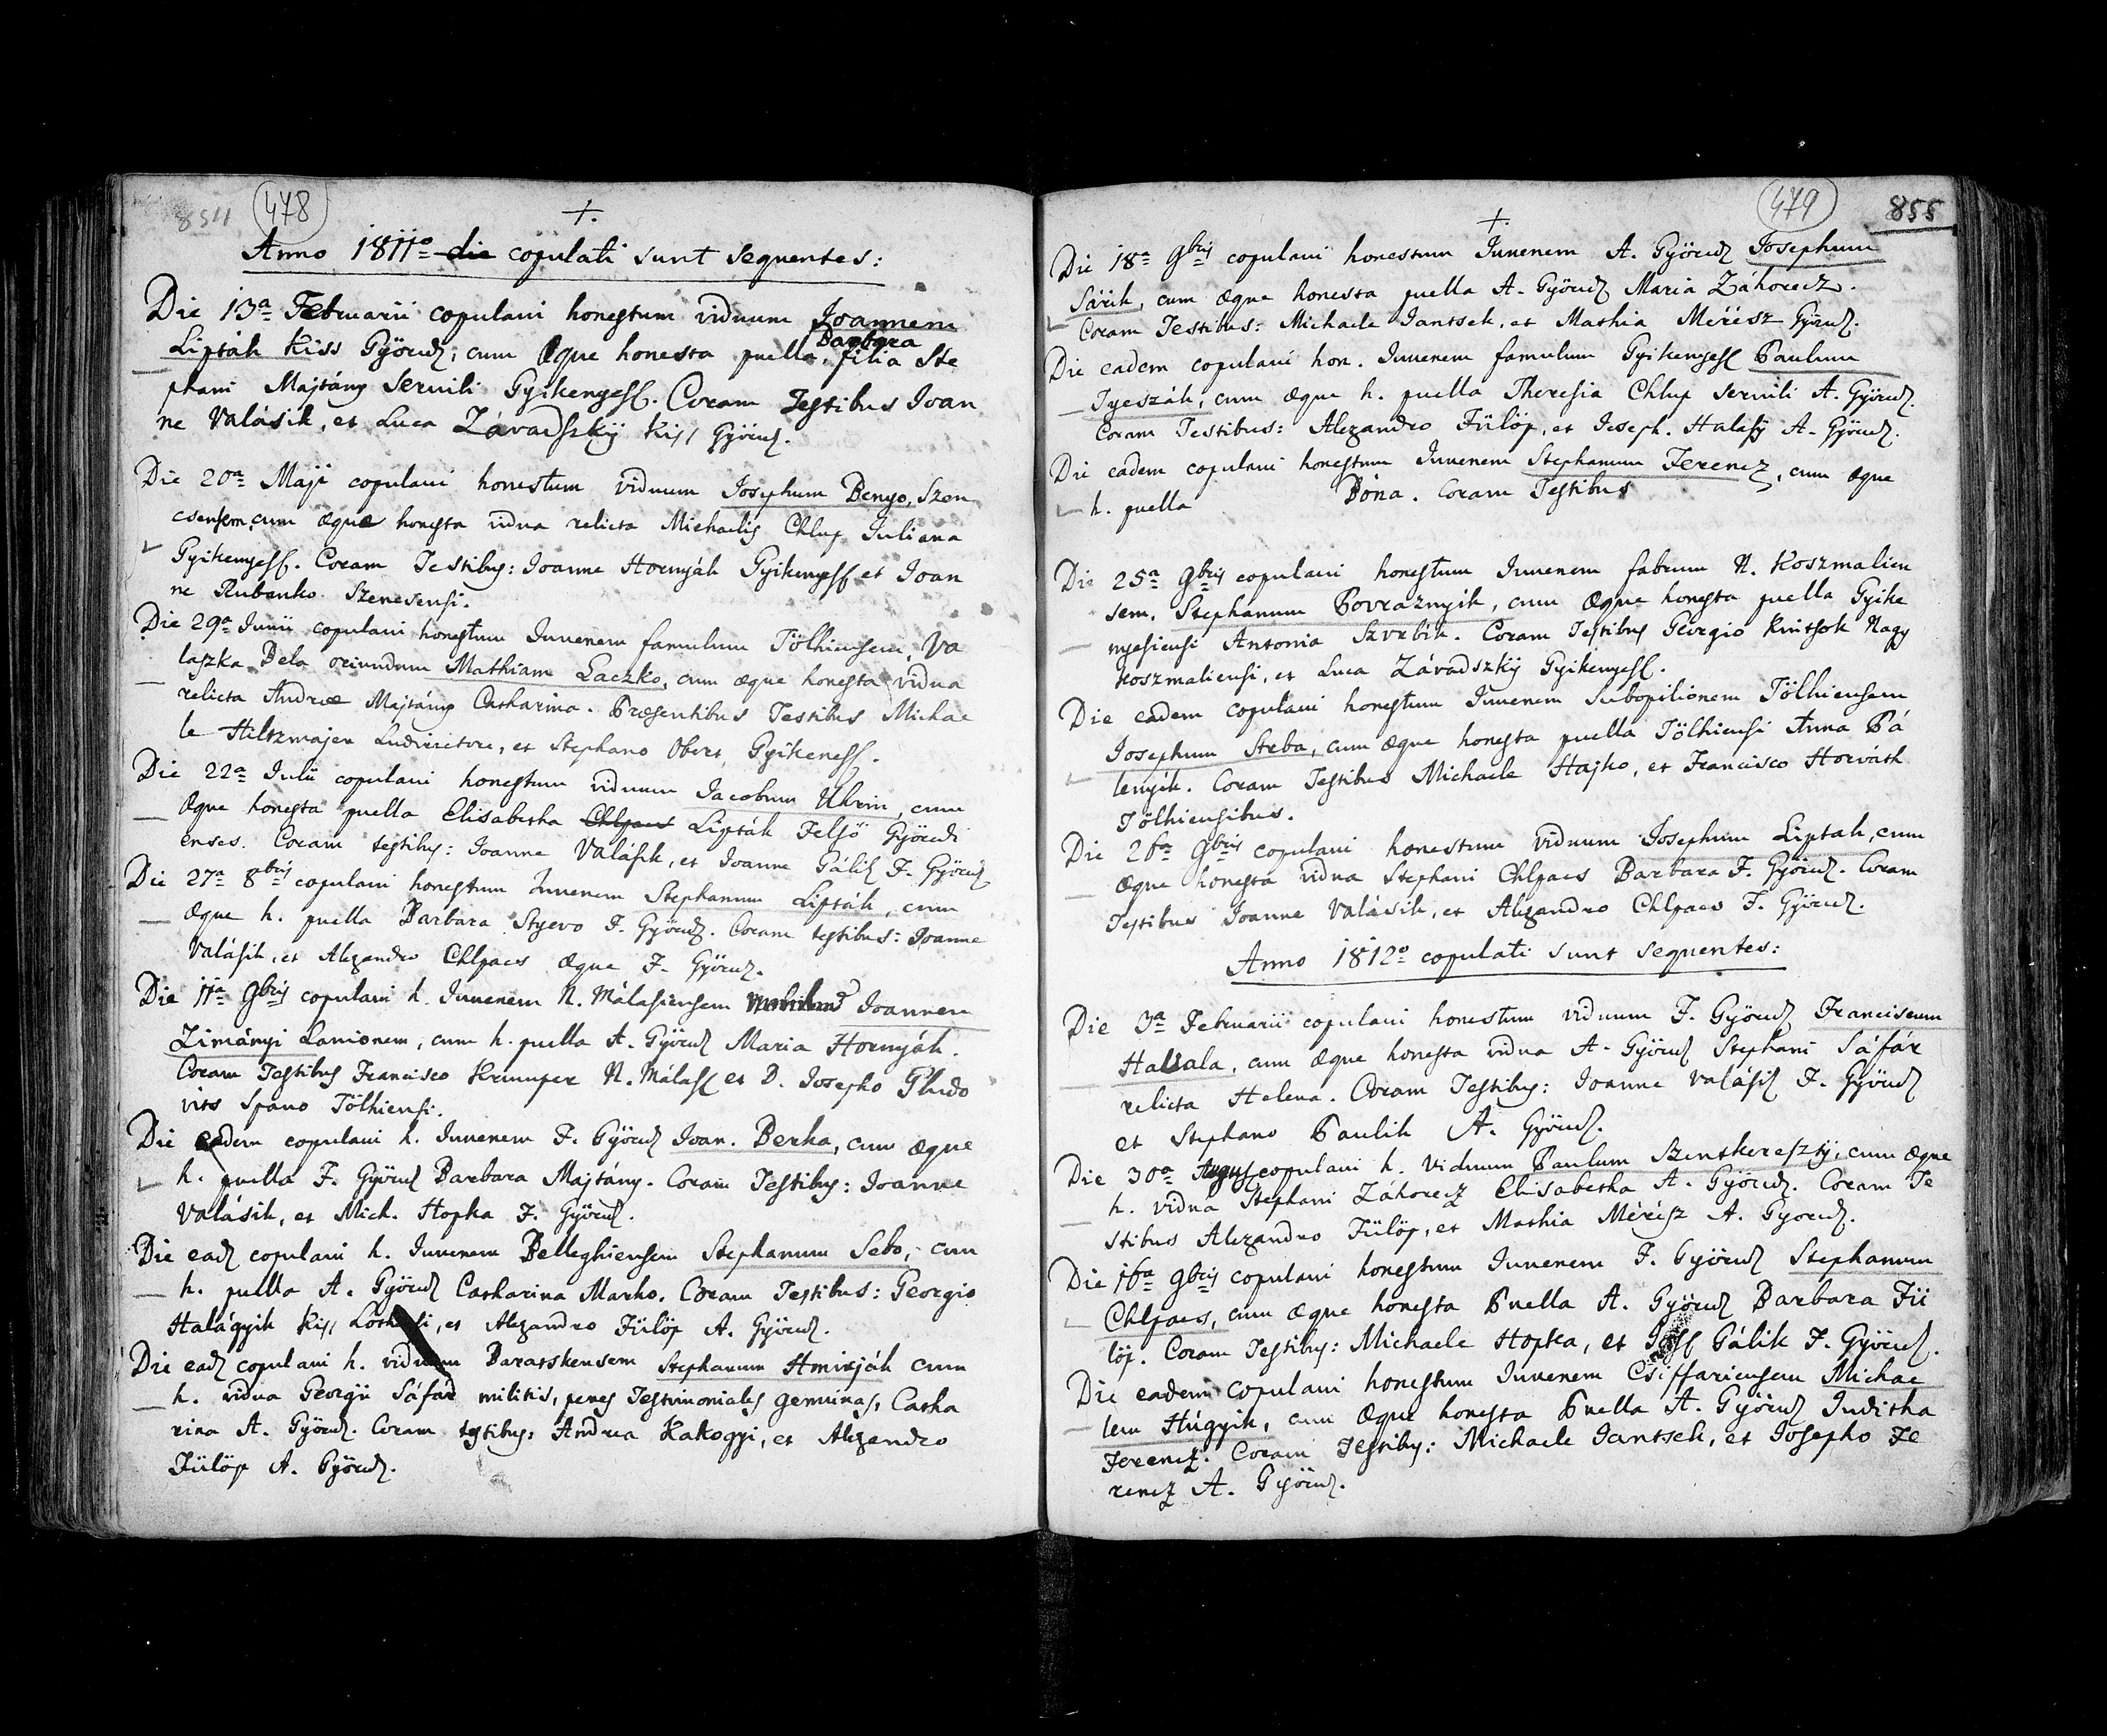 854 478
+.
Anno 1811o die copulati sunt sequentes:
Die 13a Februarii copulavi honestum viduum Joannem
Barbara
Lipták Kiss Györöd; cum æque honesta puella, filia Ste
phani Majtány Servili Gyikenyess. Coram Testibus Joan
ne Valásik, et Luca Závadszkÿ Kiss Györöd.
Die 20a Maji copulavi honestum viduum Josephum Benyo, Szen
csensem, cum æque honesta vidua relicta Michaelis Chlup Juliana
Gyikenyess. Coram Testibus: Joanne Hornyák Gyikenyess et Joan
ne Rubanko Szenesensi.
Die 29a Junii copulavi honestum Juvenem famulum Tölhiensem, Va
laszka Bela oriundum Mathiam Laczko, cum æque honesta vidua
relicta Andreæ Majtány Catharina. Præsentibus Testibus Michae
le Hiltzmajer Ludirectore, et Stephano Obert Gyikeness.
Die 22a Julii copulavi honestum viduum Jacobum Uhrin, cum
æque honesta puella Elisabetha Chlpacs Lipták Felsö Györödi
enses. Coram testibus: Joanne Valásik, et Joanne Gálik F. Györöd
Die 27a 8bris copulavi honestum Juvenem Stephanum Lipták, cum
æque h. puella Barbara Styevo F. Györöd. Coram testibus: Joanne
Valásik, et Alexandro Chlpacs æque F. Györöd.
Die 11a 9bris copulavi h. Juvenem N. Málasiensem Joannem
Zimányi Lanionem, cum h. puella A. Györöd Maria Hornyák.
Coram Testibus Francisco Krumper N. Málass et D. Josepho Ghido
vits Spano Tölhiensi.
Die eadem copulavi h. Juvenem F. Györöd Joan. Berka, cum æque
h. puella F. Györöd Barbara Majtány. Coram Testibus: Joanne
Valásik, et Mich. Hopka F. Györöd.
Die ead copulavi h. Juvenem Belleghiensem Stephanum Sebo, cum
h. puella A. Györöd Catharina Marko. Coram Testibus: Georgio
Halágyik Kiss, et Alexandro Fülöp A. Györöd.
Die ead copulavi h. viduum Baratskensem Stephanum Hmirják cum
h. vidua Georgii Sáfár militis, penes Testimoniales geminas, Catha
rina A. Györöd. Coram testibus: Andrea Kakogyi, et Alexandro
Fülöp A. Györöd.
479 855
+.
Die 18a 9bris copulavi honestum Juvenem A. Györöd Josephum
Sárik, cum æque honesta puella A. Györöd Maria Záhorecz.
Coram Testibus: Michaele Jantsek, et Mathia Mérész Györöd.
Die eadem copulavi hon. Juvenem famulum Gyikenyess Paulum
Tyeszák, cum æque h. puella Theresia Chlup servili A. Györöd.
Coram Testibus: Alexandro Fülöp, et Joseph. Halasÿ A. Györöd.
Die eadem copulavi honestum Juvenem Stephanum Ferencz, cum æque
h. puella Bóna. Coram Testibus
Die 25a 9bris copulavi honestum Juvenem fabrum N. Koszmalien
sem, Stephanum Povraznyik, cum æque honesta puella Gyike
nyesiensi Antonia Szvrbik. Coram Testibus Georgio Knitsek Nagy
Koszmaliensi, et Luca Závadszkÿ Gyikenyess.
Die eadem copulavi honestum Juvenem Subopilionem Tölhiensem
Josephum Streba, cum æque honesta puella Tölhiensi Anna Pá
lenyik. Coram Testibus Michaele Hajko, et Francisco Horváth
Tölhiensibus.
Die 26a 9bris copulavi honestum viduum Josephum Liptak, cum
æque honesta vidua Stephani Chlpacs Barbara F. Györöd. Coram
Testibus Joanne Valásik, et Alexandro Chlpacs F. Györöd.
Anno 1812o copulati sunt sequentes:
Die 3a Februarii copulavi honestum viduum F. Györöd Franciscum
Havala, cum æque honesta vidua A. Györöd Stephani Sáfár
relicta Helena. Coram Testibus: Joanne Valásik F. Györöd
et Stephano Paulik A. Györöd.
Die 30a copulavi h. viduum Paulum Szentkeresztÿ, cum æque
h. vidua Stephani Záhorecz Elisabetha A. Györöd. Coram Te
stibus Alexandro Fülöp, et Mathia Mérész A. Györöd.
Die 16a 9bris copulavi honestum Juvenem F. Györöd Stephanum
Chlpacs, cum æque honesta Puella A. Györöd Barbara Fü
löp. Coram Testibus: Michaele Hopka, et Gálik F. Györöd.
Die eadem copulavi honestum Juvenem Csiffariensem Michae
lem Húgyik, cum æque honesta Puella A. Györöd Juditha
Ferencz. Coram Testibus: Michaele Jantsek, et Josepho Fe
rencz A. Györöd.